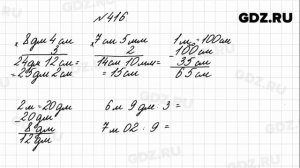 GDZ.RU
№ 416
× 8 дм 4 см
3
24 дм 12 см =
= 25 дм 2 см
× 7 см 5 мм
2
14 см 10 мм =
= 15 см
1 м = 100 см
- 100 см
35 см
65 см
2 м = 20 дм
- 20 дм
8 дм
12 дм
6 м 9 дм : 3 =
7 м 02 : 9 =
GDZ.RU